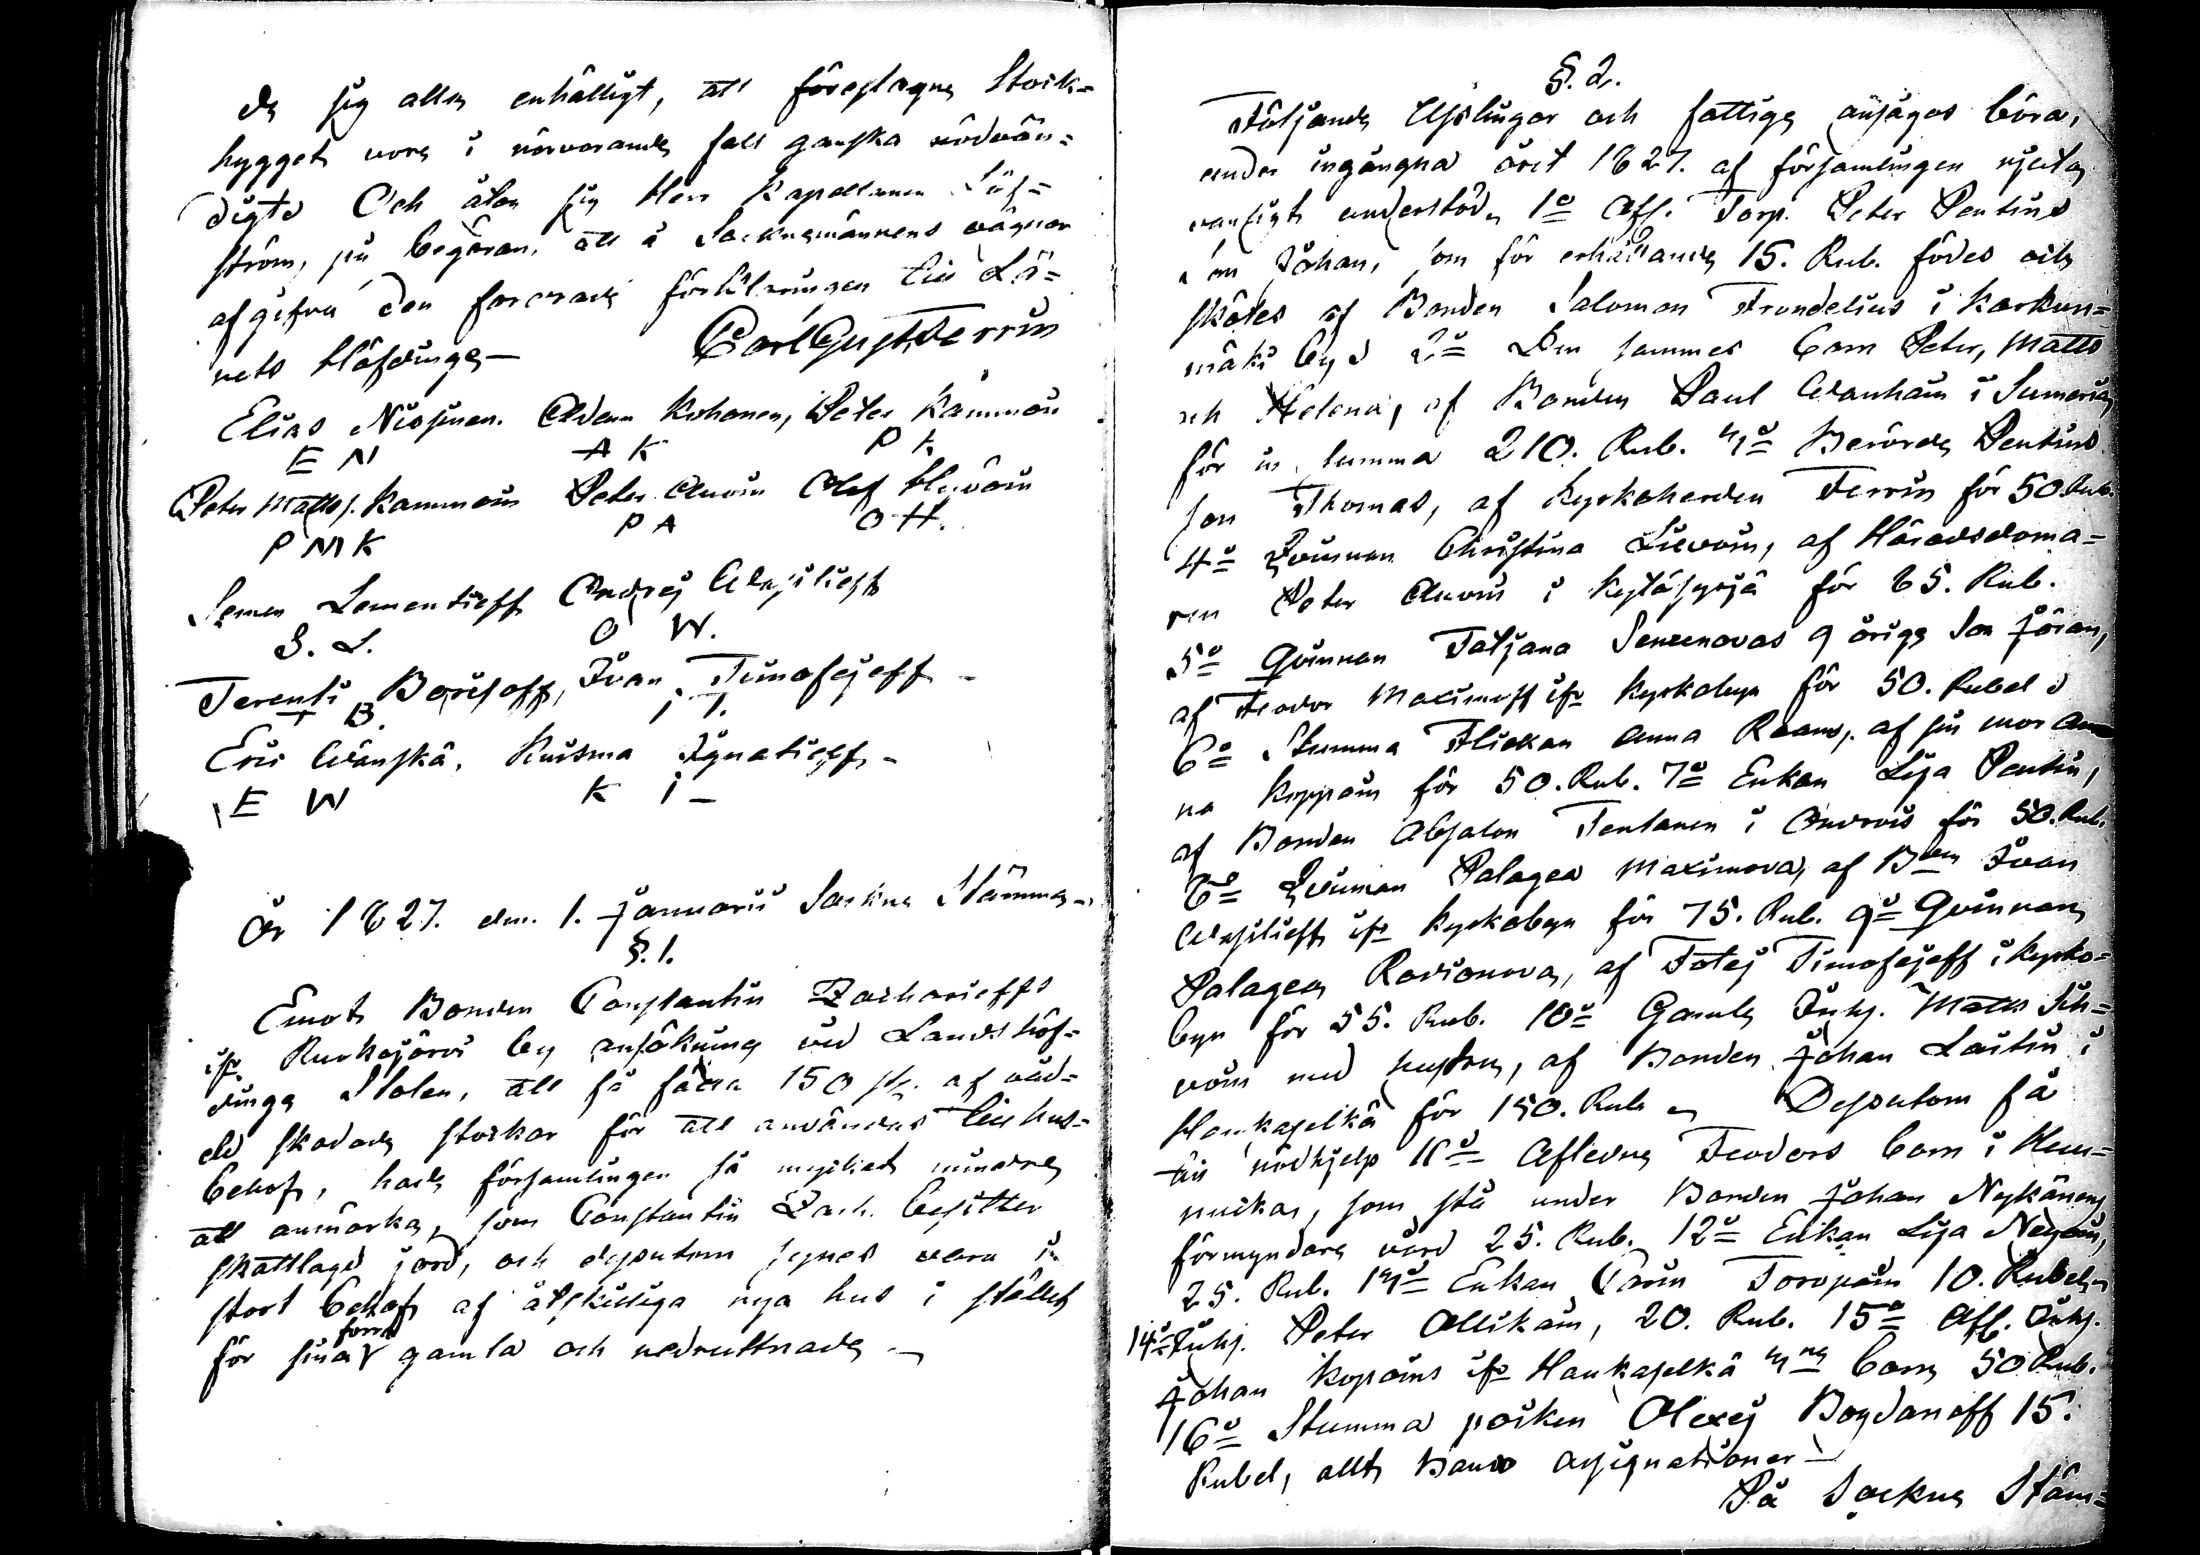 de sig alla enhälligt, att föreslagna Stock-
hygget vore i närvarande fall ganska nödvän-
digt. Och åtog sig Herr Kapellanen Löf-
ström, på begäran, att å Socknemännens vägnar
afgifva den fordrade förklaringen till Lä-
nets Höfdinge — Carl Gust. Ferrin
Elias Nissinen. Adam Kohonen, Peter Kämmöi
E N A K P K
Peter Matts s. Kammoin Peter Auvin Olof Huvöin
P M K P A O H.
Semen Sementieff Ondrej Wasilieff
S. S. O W.
Terenti Borisoff, Ivan Timofejeff -
T B. I T.
Eric Wänskä, Kusma Ignatieff -
E W K I -
År 1827. den 1. Januarii Sockne Stämma -
§. 1.
Emot Bonden Constantin Zacharieffs
ifr. Ruokojärvi by ansökning vid Landshöf-
dinge Stolen, att få fälla 150 st. af våd-
eld skadade stockar för att användas till hus-
behof, hade församlingen så mycket mindre
att anmärka, som Constantin Zach. besitter
skattlagd jord, och dessutom synes vara i
stort behof af åtskilliga nya hus i stället
för sina förra gamla och nedruttnade —
§. 2.
Följande Usslingar och fattige ansågos böra,
under ingångna året 1827. af församlingen njuta
vanligt understöd, 1o Afl. Torp. Peter Pentins
son Johan, som för erhållande 15. Rub. födes och
skötes af Bonden Salomon Trondelius i Korkun-
mäki by 2o Den sammes barn Peter, Matts
och Helena, af Bonden Paul Wanhain i Sumeria
för en summa 210. Rub. 3o Berörde Pentins
son Thomas, af Kyrkoherden Ferrin för 50 Rub.
4o Qvinnan Christina Lievoin, af Häradsdoma-
ren Peter Auvin i Kytösyrjä för 65. Rub.
5o Qvinnan Tatjana Semenovas 9 åriga Son Jöran,
af Feodor Maximoff ifr Kyrkobyn för 50. Rubel
6o Stumma Flickan Anna Raamo, af sin mor An
na Koppoin för 50. Rub. 7o Enkan Lisa Pentin,
af Bonden Absalon Tentanen i för 50. Rub.
8o Qvinnan Palagea Maximova, af Bden Ivan
Wasilieff ifr Kyrkobyn för 75. Rub. 9o Qvinnan
Palagea Rodionova, af Fotej Timofejeff i Kyrko-
byn för 55. Rub. 10o Gamle Inhy. Matts Sih-
vöin med hustru, af Bonden Johan Laitin i
Haukaselkä för 150. Rub. — Dessutom få
till nödhjelp 11o Afledne Feodors barn i Hem-
, som stå under Bonden Johan Nykänens
förmyndare vård 25. Rub. 12o Enkan Lisa ,
25. Rub. 13o Enkan Carin Toropain 10. Rubel
14o Inhy. Peter Ollikain, 20. Rub. 15o Afl. Inhy.
Johan Kopoins ifr Haukaselkä 3ne barn 50 Rub.
16o Stumma poiken Olexej Bogdanoff 15.
Rubel, allt Banco assignationer —
På Sockne Stäm-